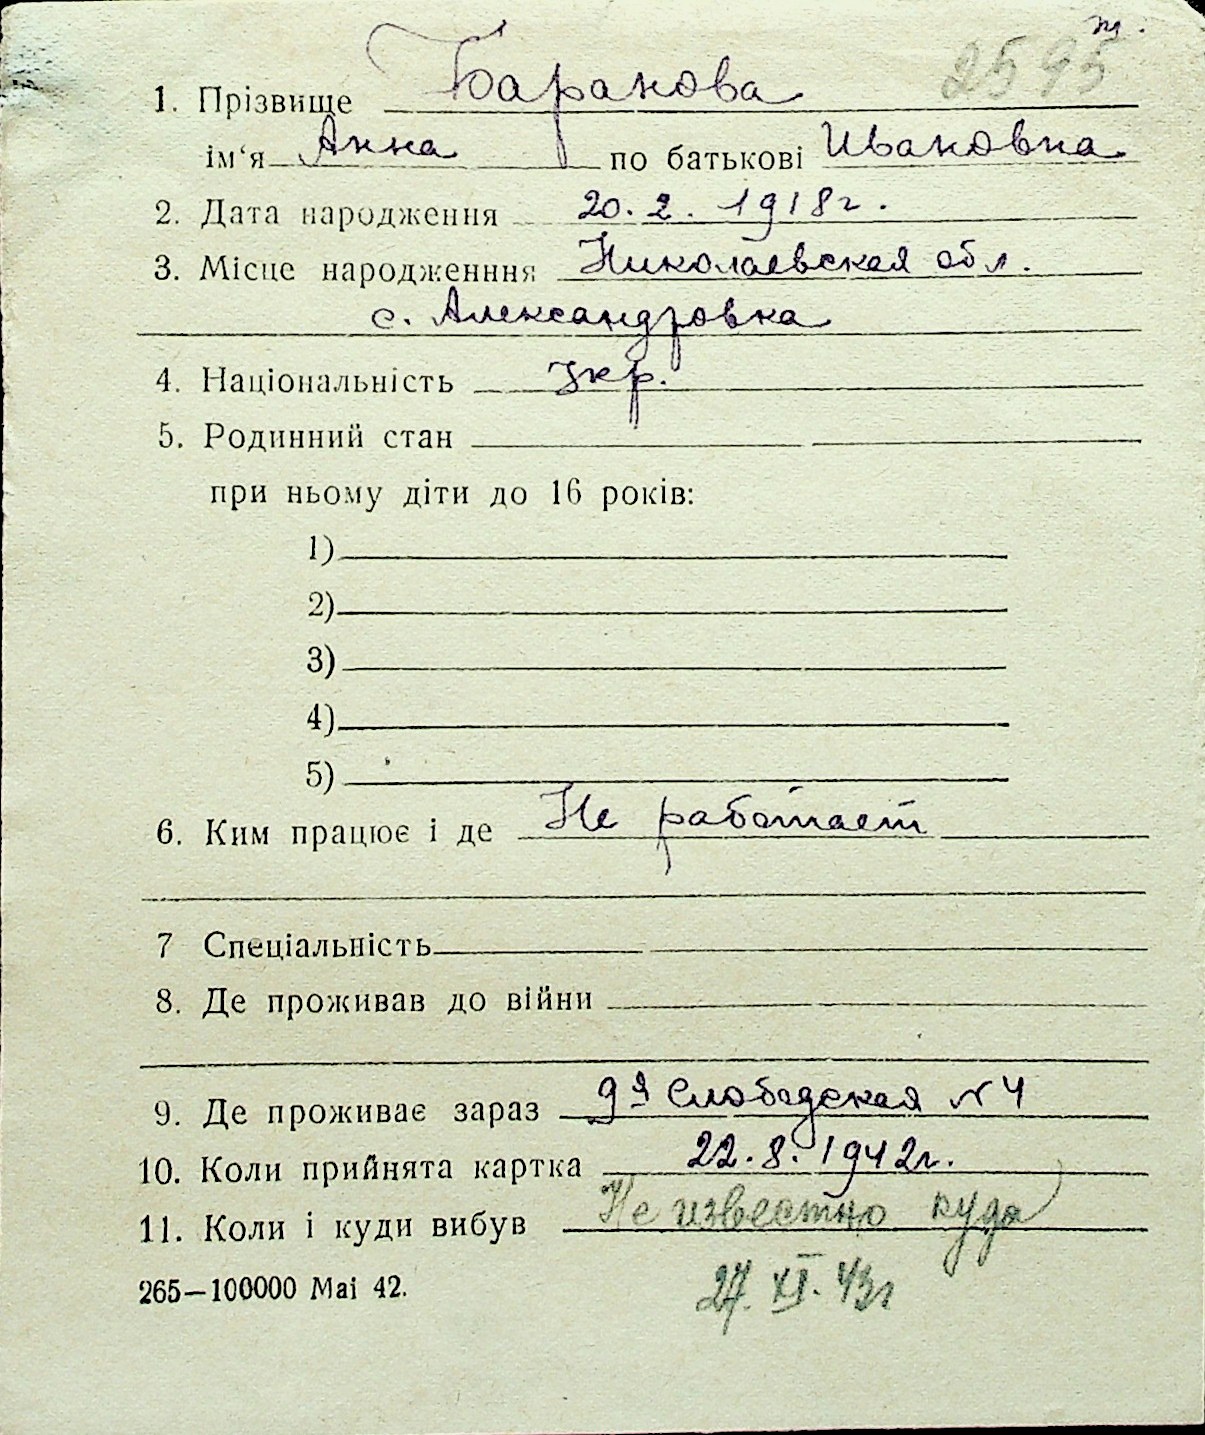 т.
2595
1. Прізвище Баранова
ім‘я Анна по батькові Ивановна
2. Дата народження 20.2.1918г.
3. Місце народженння Николаевская обл.
с. Александровка
4. Національність Укр.
5. Родинний стан
при ньому діти до 16 років:
1)
2)
3)
4)
5)
6. Ким працює і де Не работает
7 Спеціальність
8. Де проживав до війни
9. Де проживає зараз 9я Слободская №4
10. Коли прийнята картка 22.8.1942г.
11. Коли і куди вибув Не известно куда
265—100000 Mai 42.
27.XI.43г